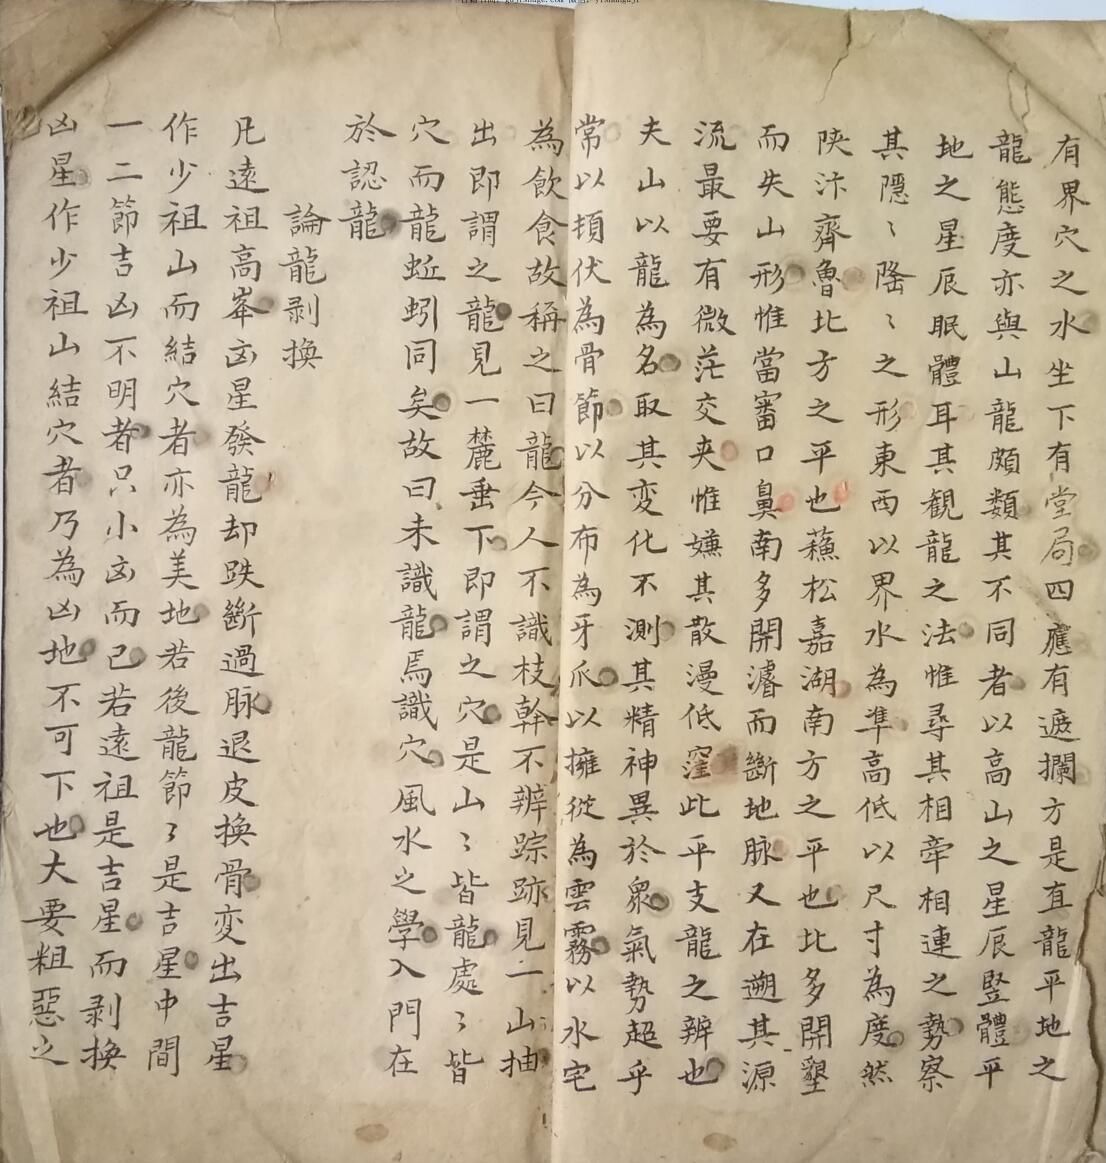 有界穴之水坐下有堂局四應有遮攔方是直龍平地之
龍態度亦與山龍頗類其不同者以高山之星辰竪體平
地之星辰眠體耳其觀龍之法惟尋其相牽相連之勢察
其隱〻隆〻之形東西以界水為準高低以尺寸為度然
陝汴齊魯北方之平也蘓松嘉湖南方之平也北多開墾
而失山形惟當審口鼻南多開濬而斷地脉又在遡其源
流最要有微茫交夾惟嫌其散漫低窪此平支龍之辨也
夫山以龍為名取其変化不測其精神異於衆氣勢超乎
常以頓伏為骨節以分布為牙爪以擁從為雲霧以水宅
為飲食故稱之曰龍今人不識枝幹不辨踪跡見一山抽
出即謂之龍見一麓垂下即謂之穴是山〻皆龍處〻皆
穴而龍蚯蚓同矣故曰未識龍焉識穴風水之學入門在
於認龍
論龍剥換
凡遠祖高峯凶星發龍却跌斷過脉退皮換骨变出吉星
作少祖山而結穴者亦為美地若後龍節〻是吉星中間
一二節吉凶不明者只小凶而已若遠祖是吉星而剥換
凶星作少祖山結穴者乃為凶地不可下也大要粗惡之